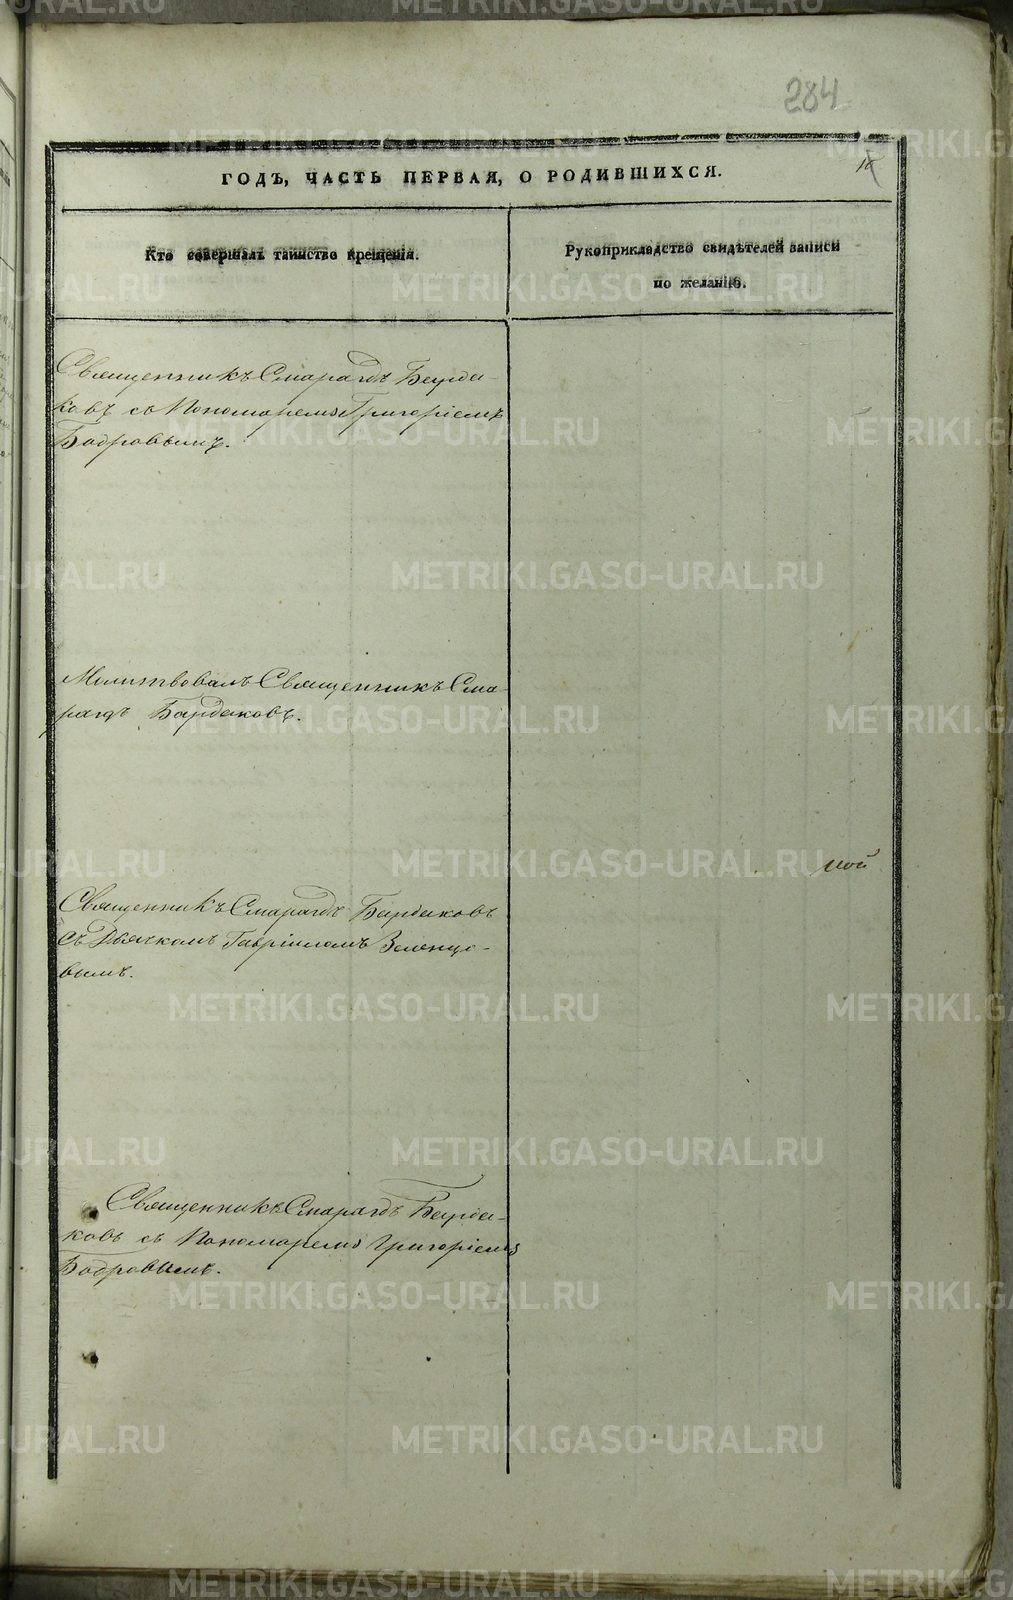 284
ГОДЪ, ЧАСТЬ ПЕРВАЯ, О РОДИВШИХСЯ.
Кто совершалъ таинство крещенія.
Рукоприкладство свидѣтелей записи
по желанію.
Священникъ Смарагдъ Бурда-
ковъ съ Пономаремъ Григоріемъ
Бобровымъ.
Молитвовалъ Священникъ Сма
рагдъ Бурдаковъ.
ной
Священникъ Смарагдъ Бурдаковъ
съ Дьячкомъ Гавріиломъ Зеленцо-
вымъ.
Священникъ Смарагдъ Бурда-
ковъ съ Пономаремъ Григоріемъ
Бобровымъ.
METRIKI.GASO-URAL.RU